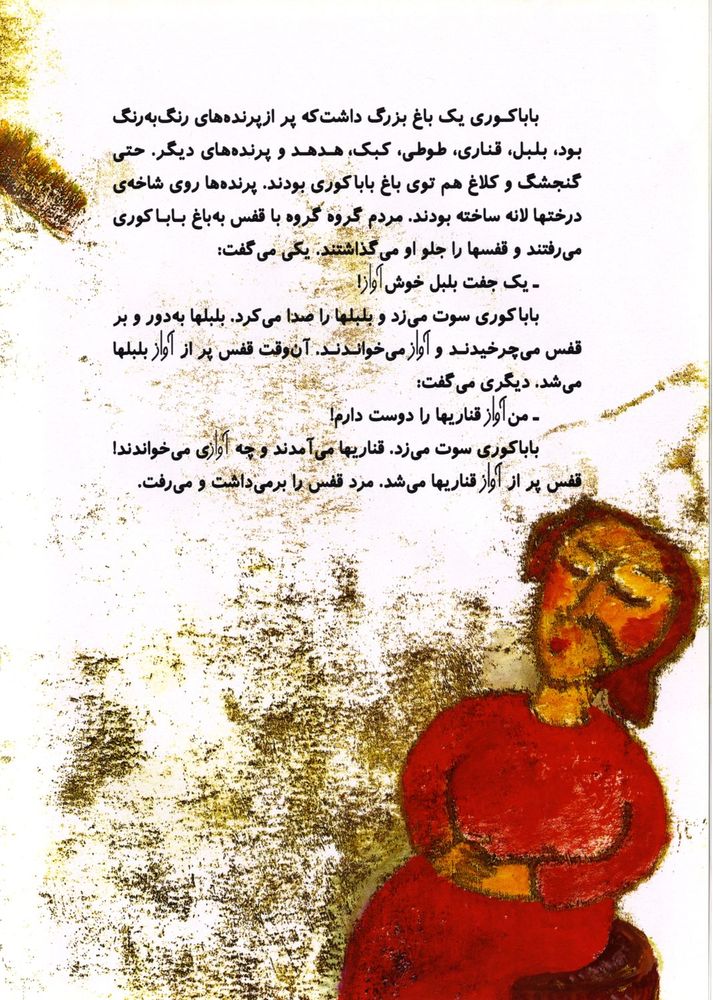 باباکوری یک باغ بزرگ داشت‌که پر ازپرنده‌های رنگ‌به‌رنگ
بود، بلبل، قناری، طوطی، کبک، هدهد و پرنده‌های دیگر. حتی
گنجشگ و کلاغ هم توی باغ باباکوری بودند. پرنده‌ها روی شاخه‌ی
درختها لانه ساخته بودند. مردم گروه گروه با قفس به‌باغ باباکوری
می‌رفتند و قفسها را جلو او می‌گذاشتند. یکی می‌گفت:
ـ یک جفت بلبل خوش آواز!
باباکوری سوت می‌زد و بلبلها را صدا می‌کرد. بلبلها به‌دور و بر
قفس می‌چرخیدند و آواز می‌خواندند. آن‌وقت قفس پر از آواز بلبلها
می‌شد. دیگری می‌گفت:
ـ من آواز قناریها را دوست دارم!
باباکوری سوت می‌زد. قناریها می‌آمدند و چه آوازی می‌خواندند!
قفس پر از آواز قناریها می‌شد. مرد قفس را برمی‌داشت و می‌رفت.